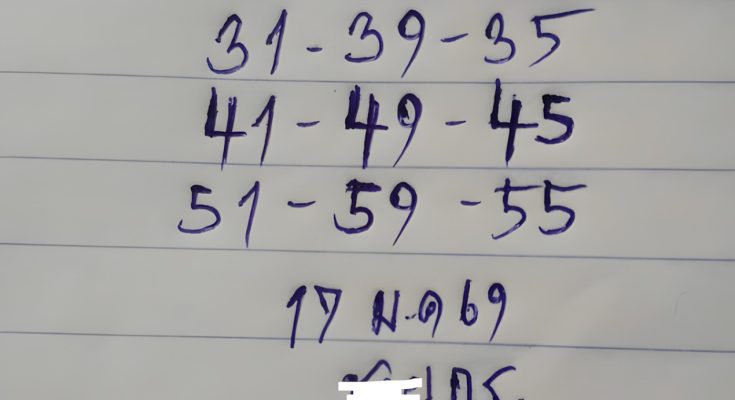 31 - 39 - 35
41 - 49 - 45
51 - 59 - 55
17 ม.ค 69